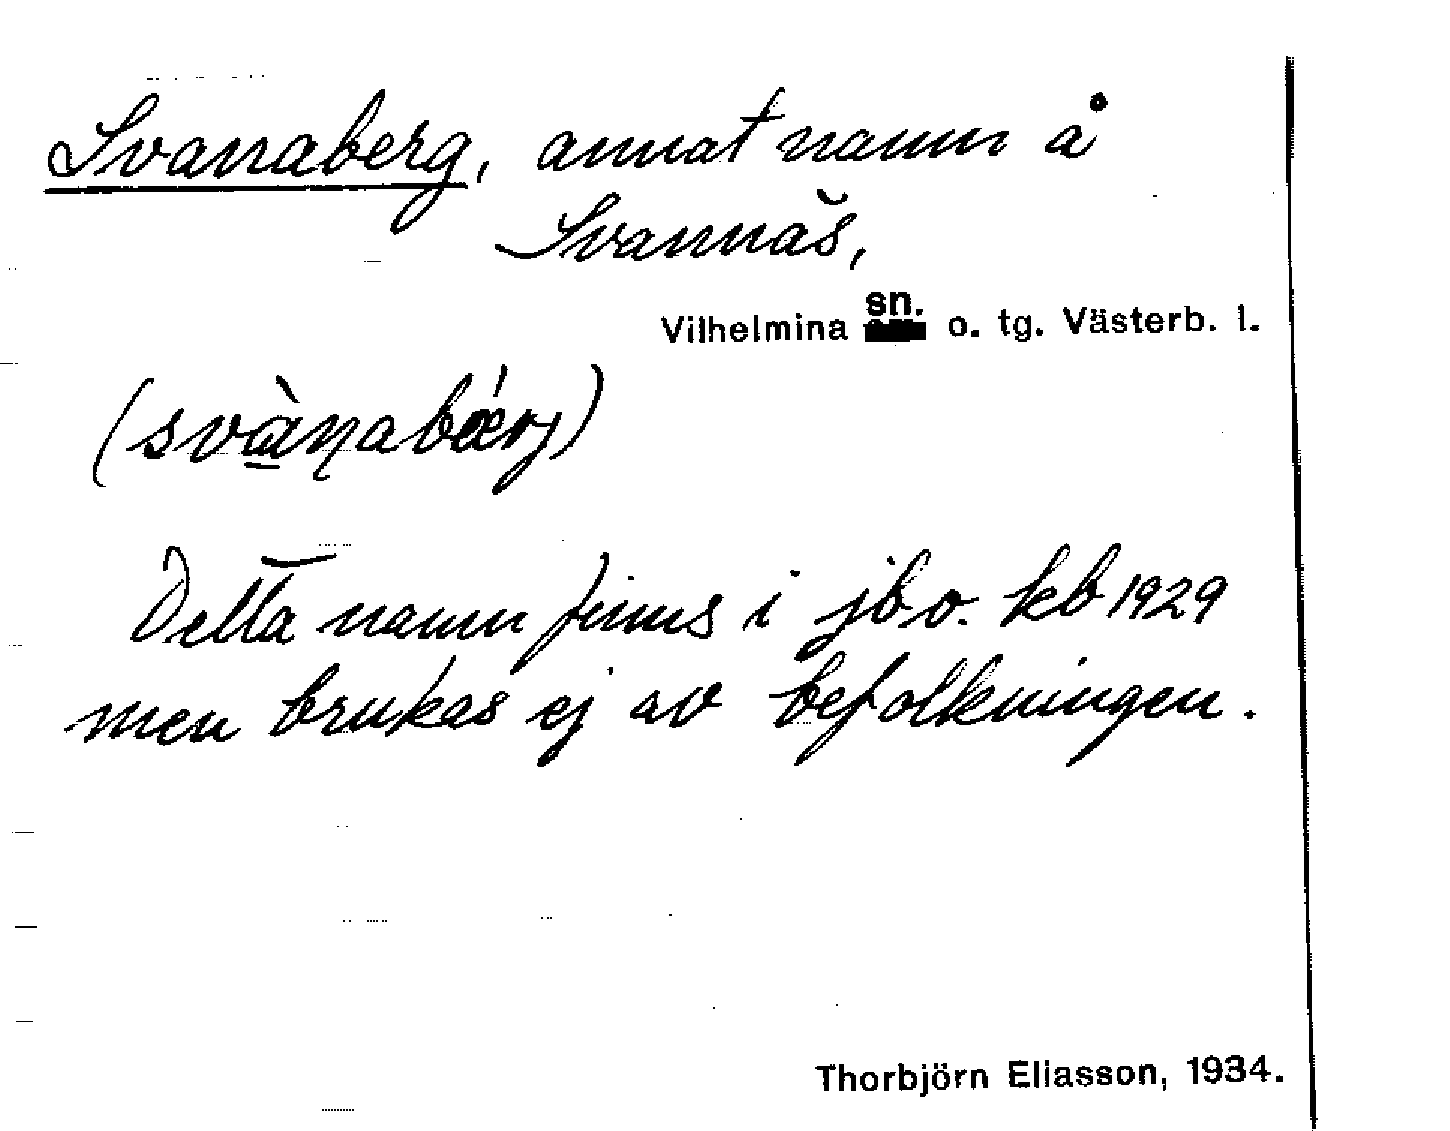 Svanaberg, annat namn å
Svannäs,
Vilhelmina sn. o. tg. Västerb. l.
(svànabǽrj)
Detta namn finns i jb o. kb 1929
men brukas ej av befolkningen.
Thorbjörn Eliasson, 1934.